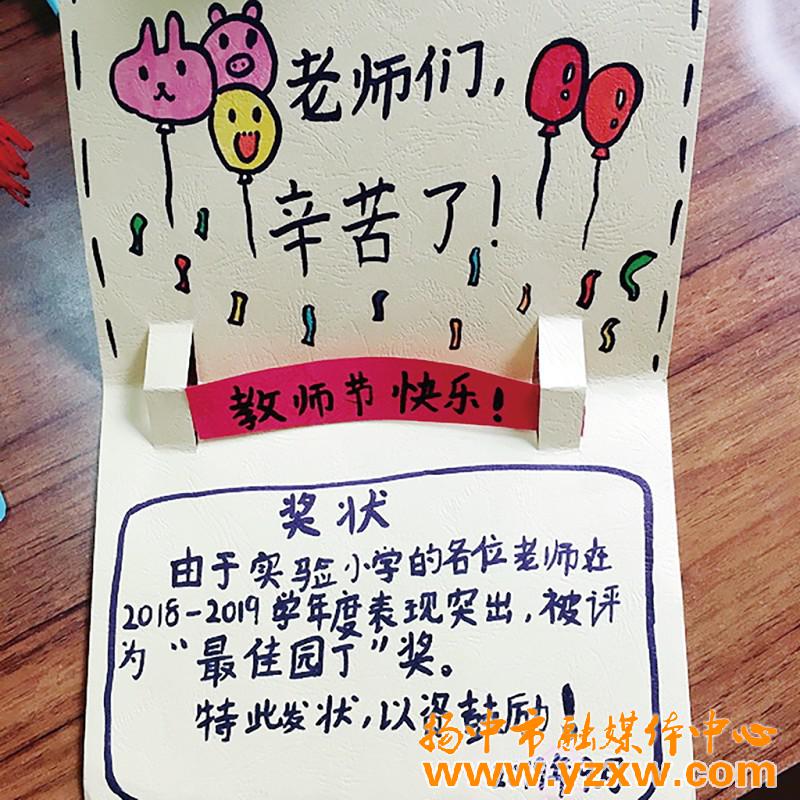 老师们,
辛苦了!
教师节快乐!
奖状
由于实验小学的各位老师在
2018-2019学年度表现突出,被评
为“最佳园丁”奖。
特此发状,以资鼓励!
扬中市融媒体中心
www.yzxw.com